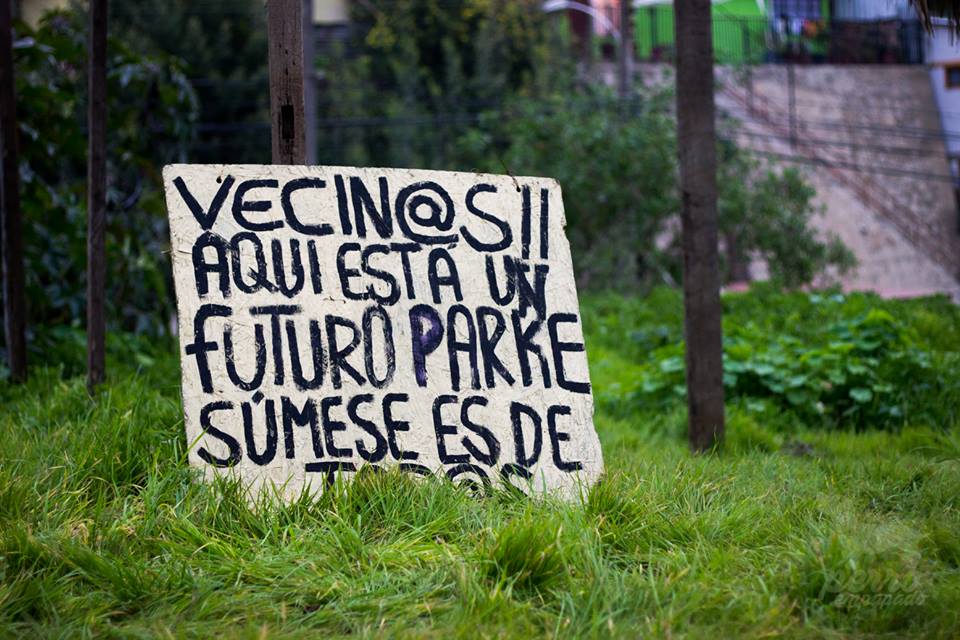 VECIN@S!!
AQUI ESTÁ UN
FUTURO PARKE
SÚMESE ES DE
TOD@S